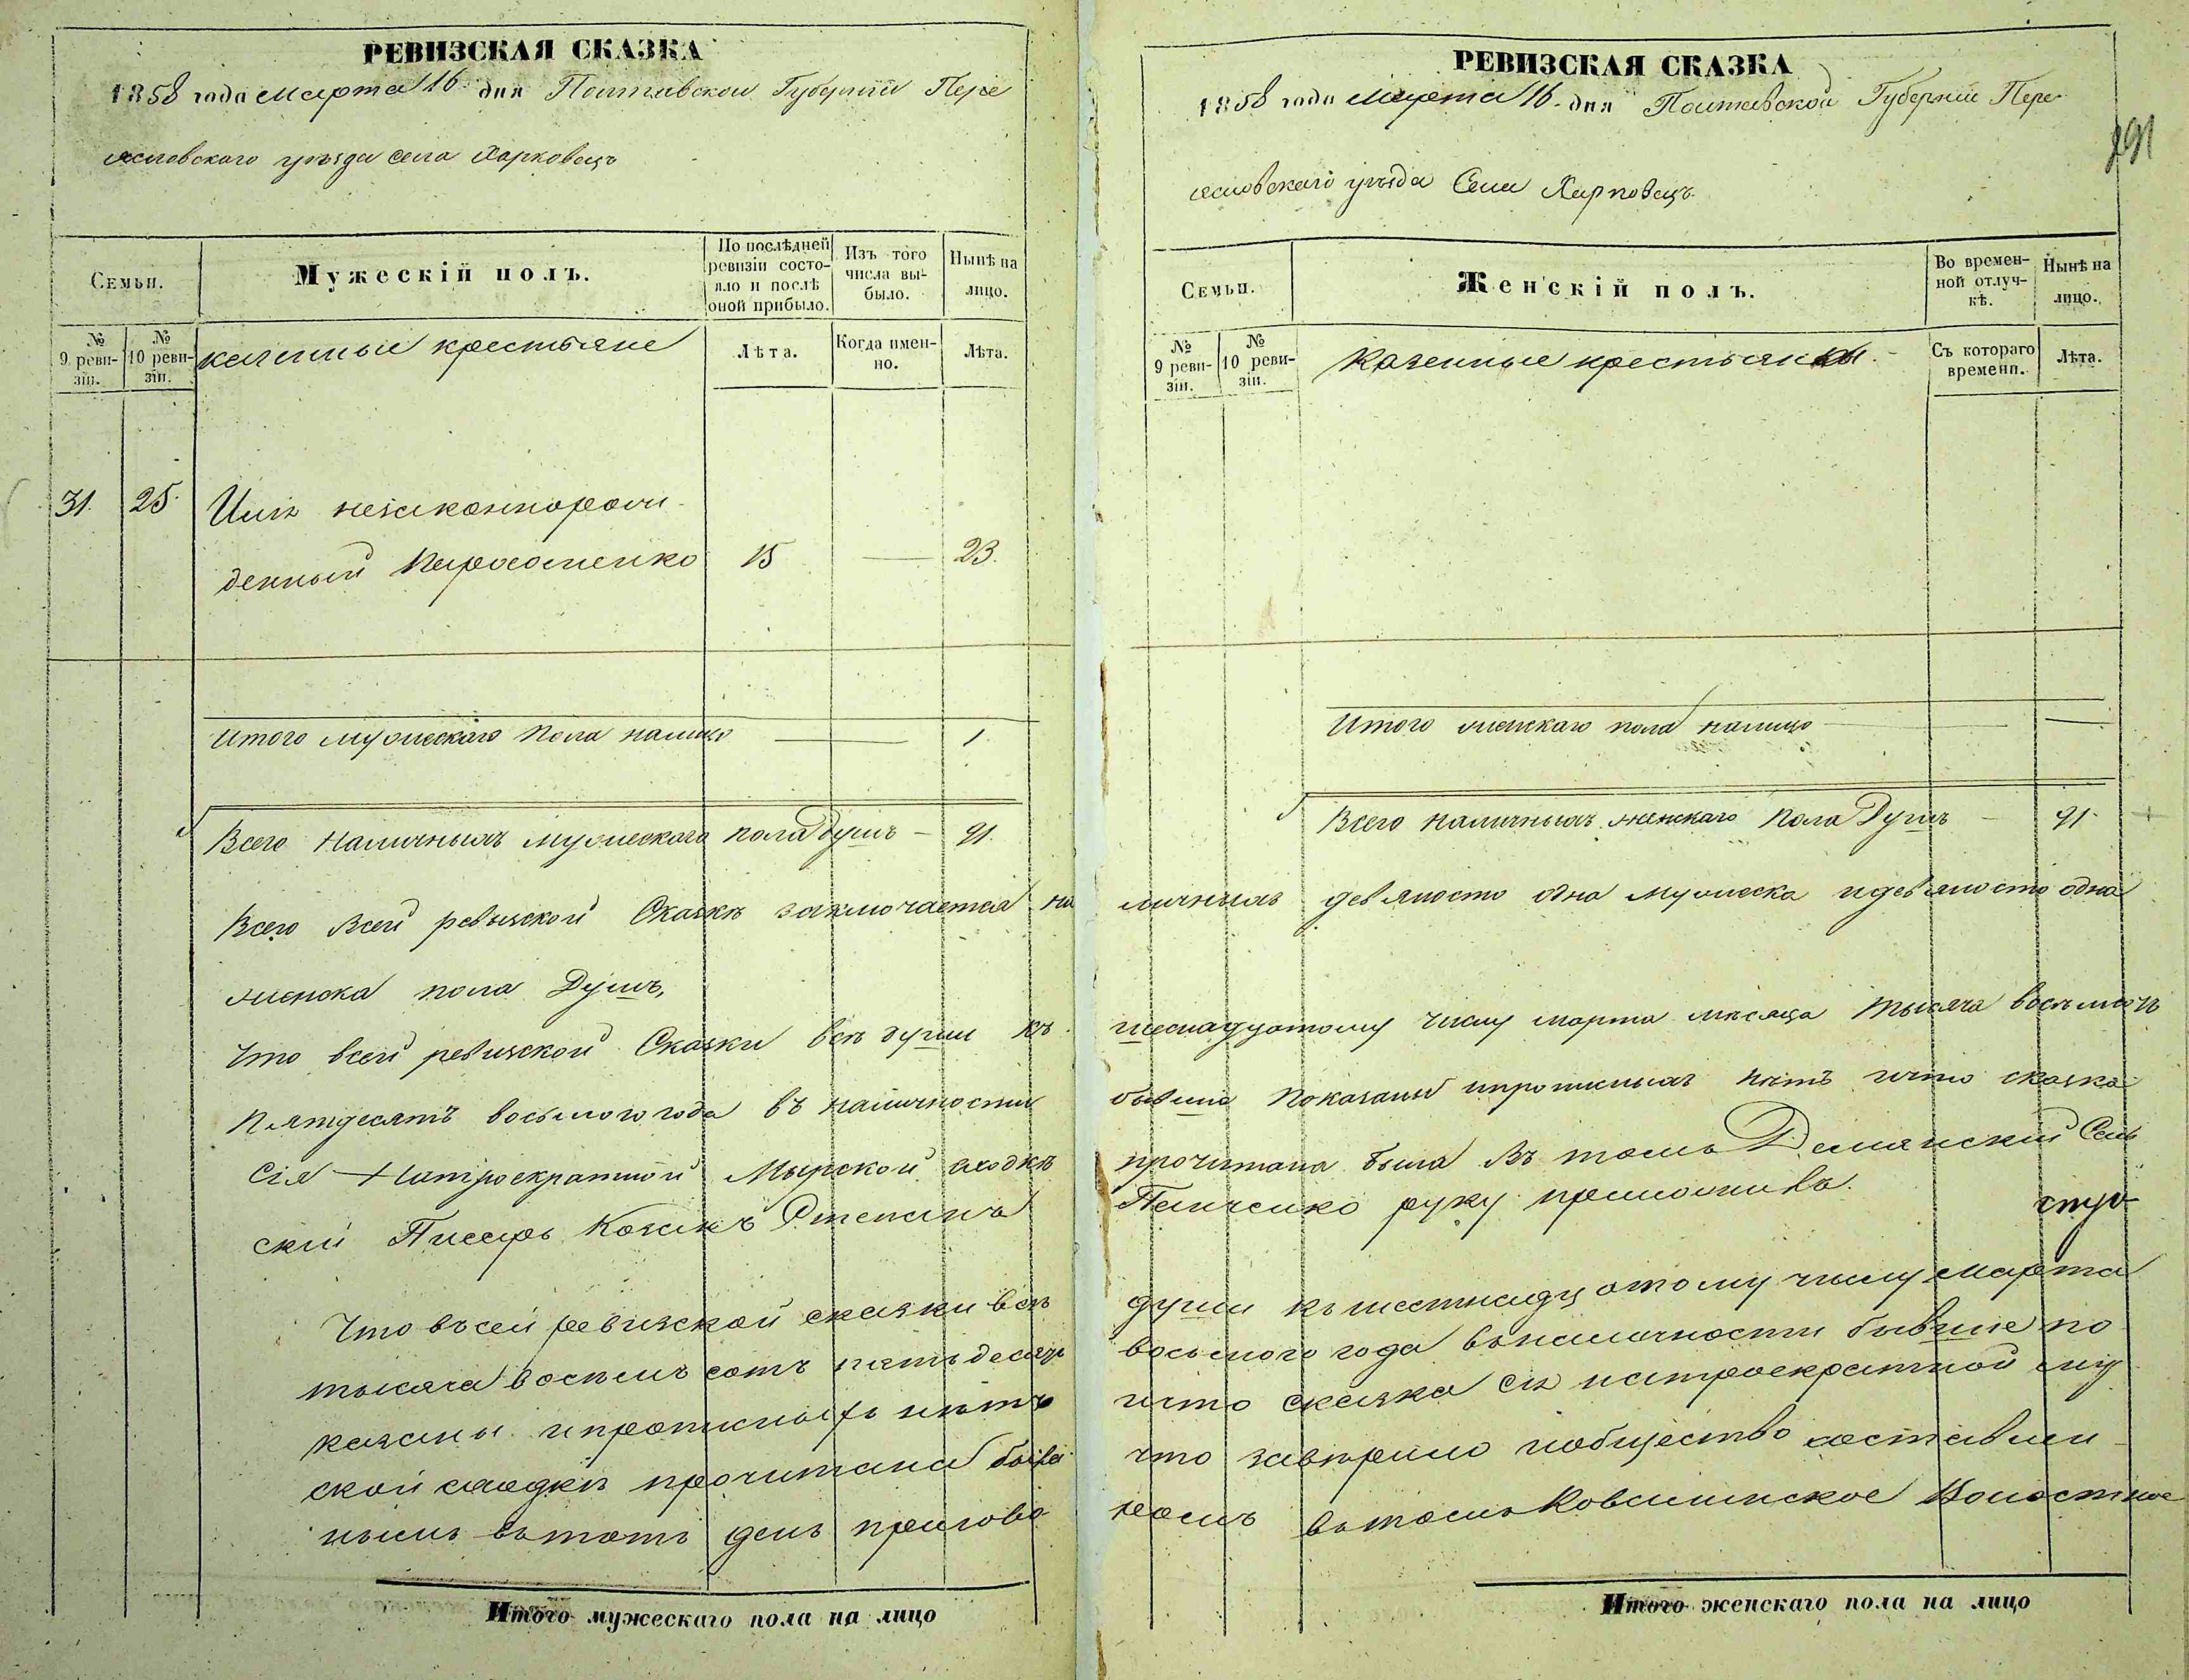 РЕВИЗСКАЯ СКАЗКА
1858 года Марта 16 дня Полтавской Губерніи Пере
яславского уѣзда села Харковецъ
Семьи.
Мужескій полъ.
По послѣдней ревизіи состояло и послѣ оной прибыло.
Изъ того числа выбыло.
Нынѣ на лицо.
№ 9 ревизіи.
№ 10 ревизіи.
казенные крестьяне
Лѣта.
Когда именно.
Лѣта.
31. 25. незаконнорож
денный 15 — 23.
Итого мужескаго пола налицо — 1.
Всего наличныхъ мужескаго пола Душъ — 91.
Всего всей ревизской Сказкѣ заключается на
женска пола Душъ,
Что всей ревизской Сказки всѣ души къ
пятдесятъ восьмого года въ наличности
сія натроекратной Мырской сходкѣ
скій Писарь Козакъ Степанъ
Что въсей ревизской сказки всѣ
тысяча восемъ сотъ пятьдесятъ
казаны ипрописныхъ нѣтъ
ской сходкѣ прочитана была
нымъ втотъ день пригово
Итого мужескаго пола на лицо
РЕВИЗСКАЯ СКАЗКА
1858 года Марта 16. дня Полтавской Губерніи Пере
яславскаго уѣзда Села Харковецъ.
891
Семьи.
Женскій полъ.
Во временной отлучкѣ.
Нынѣ на лицо.
№ 9 ревизіи.
№ 10 ревизіи.
Казенные крестьянки.
Съ котораго времени.
Лѣта.
Итого женскаго пола налицо —
Всего наличныхъ женскаго пола Душъ — 91.
личныхъ девяносто одна мужеска идевяносто одна
шеснадцатому числу марта мѣсяца тысяча восемсотъ
бывшіе показаны ипрописныхъ нѣтъ ичто сказка
прочитана была Въ томъ Демянскій Сель
руку приложивъ.
души къ шестнадцатому числу Марта
восьмого года вналичности бывшіе по
ичто сказка сія натроекратной мір
что завѣрило иобщество составлен
ромъ втомъ Ковалинское Волостное
Итого женскаго пола на лицо